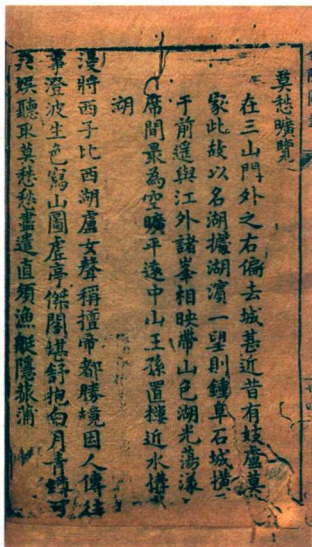 莫愁曠覽
在三山門外之右偏去城甚近昔有妓盧莫
家此故以名湖據湖濱一望則鍾阜石城橫
于前遙與江外諸峯相映帶山色湖光蕩漾
席間最為空曠平遠中山王孫置樓近水構
湖
漫將西子比西湖盧女聲稱擅帝都勝境因人傳往
事澄波生色寫山圖虛亭傑閣堪舒抱白月青罇可
共娛聽取莫愁愁盡遣直須漁艇隱菰蒲